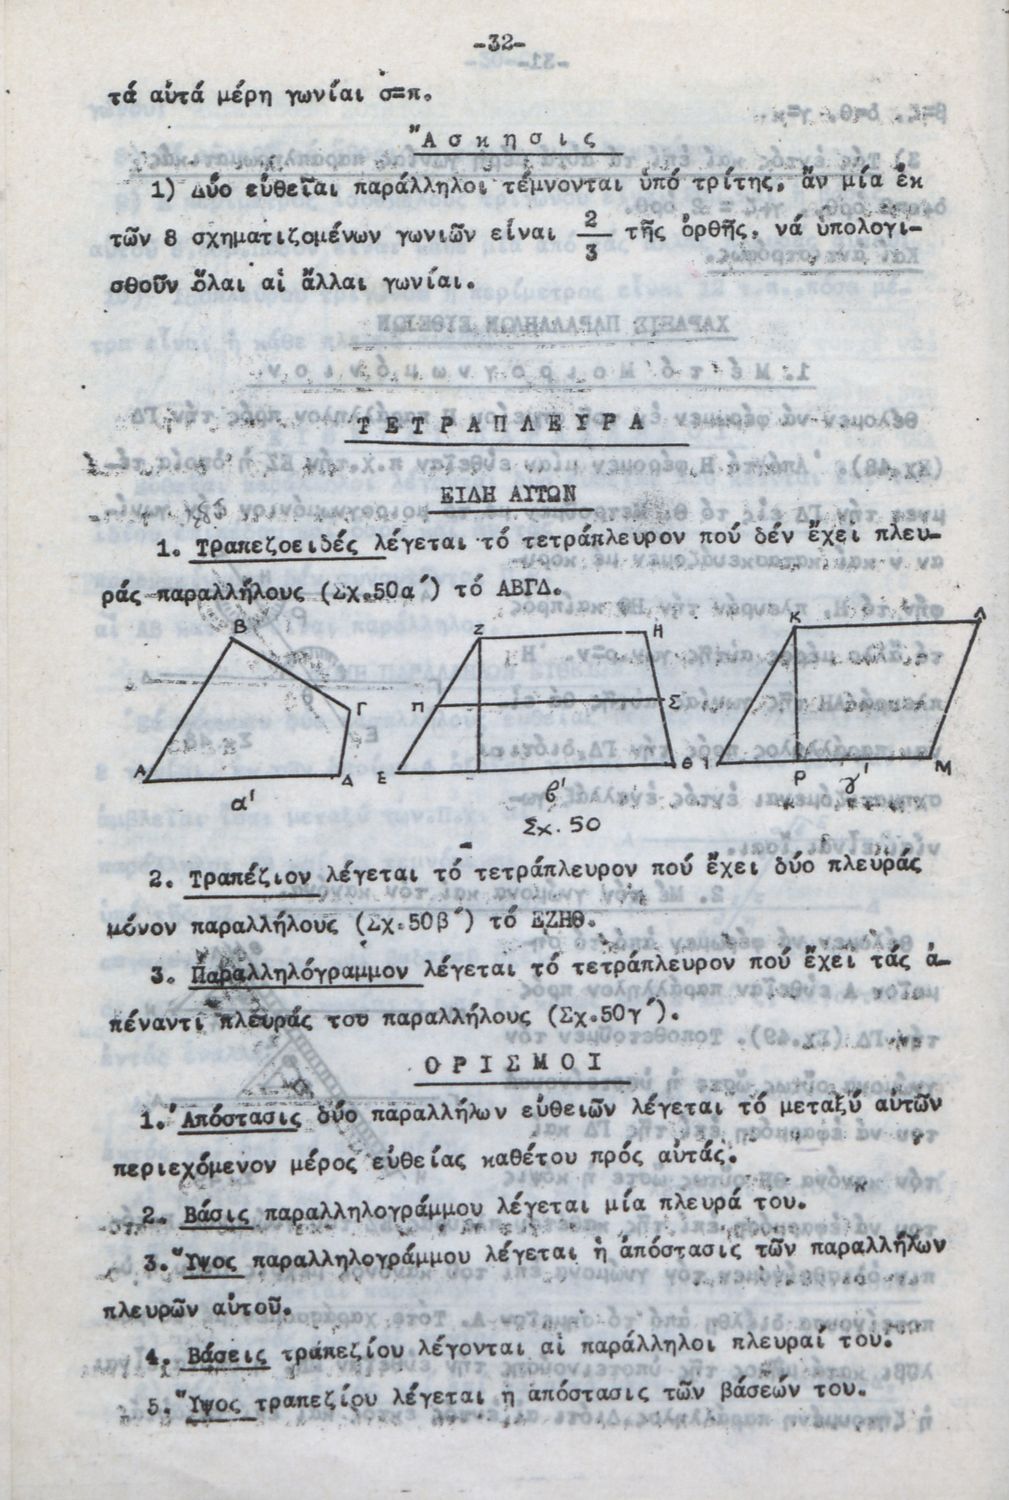 -32-
τά αὐτά μέρη γωνίαι σ=π.
Ἄσκησις
1) Δύο εὐθεῖαι παράλληλοι τέμνονται ὑπό τρίτης, ἄν μία ἐκ
τῶν 8 σχηματιζομένων γωνιῶν εἶναι 2/3 τῆς ὀρθῆς, νά ὑπολογι-
σθοῦν ὅλαι αἱ ἄλλαι γωνίαι.
ΤΕΤΡΑΠΛΕΥΡΑ
ΕΙΔΗ ΑΥΤΩΝ
1. Τραπεζοειδές λέγεται τό τετράπλευρον πού δέν ἔχει πλευ-
ράς παραλλήλους (Σχ.50α΄) τό ΑΒΓΔ.
Β Ζ Η Κ Λ
Π Γ Σ
Α Δ Ε Θ Ι Ρ Μ
α' β' γ'
Σχ. 50
2. Τραπέζιον λέγεται τό τετράπλευρον πού ἔχει δύο πλευράς
μόνον παραλλήλους (Σχ.50β΄) τό ΕΖΗΘ.
3. Παραλληλόγραμμον λέγεται τό τετράπλευρον πού ἔχει τάς ἀ-
πέναντι πλευράς του παραλλήλους (Σχ.50γ΄).
ΟΡΙΣΜΟΙ
1. Ἀπόστασις δύο παραλλήλων εὐθειῶν λέγεται τό μεταξύ αὐτῶν
περιεχόμενον μέρος εὐθείας καθέτου πρός αὐτάς.
2. Βάσις παραλληλογράμμου λέγεται μία πλευρά του.
3. Ὕψος παραλληλογράμμου λέγεται ἡ ἀπόστασις τῶν παραλλήλων
πλευρῶν αὐτοῦ.
4. Βάσεις τραπεζίου λέγονται αἱ παράλληλοι πλευραί του.
5. Ὕψος τραπεζίου λέγεται ἡ ἀπόστασις τῶν βάσεών του.